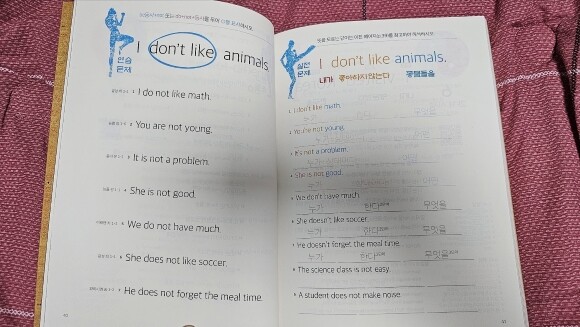 I don't like animals.
연습
문제
1 I do not like math.
2 You are not young.
3 It is not a problem.
4 She is not good.
5 We do not have much.
6 She does not like soccer.
7 He does not forget the meal time.
I don't like animals.
실전
문제
내가 좋아하지 않는다 동물들을
1 I don't like math.
누가
2 You're not young.
누가
3 It's not a problem.
누가
4 She is not good.
누가
5 We don't have much.
누가 한다 무엇을
6 She doesn't like soccer.
누가 한다 무엇을
7 He doesn't forget the meal time.
누가 한다 무엇을
8 The science class is not easy.
9 A student does not make noise.